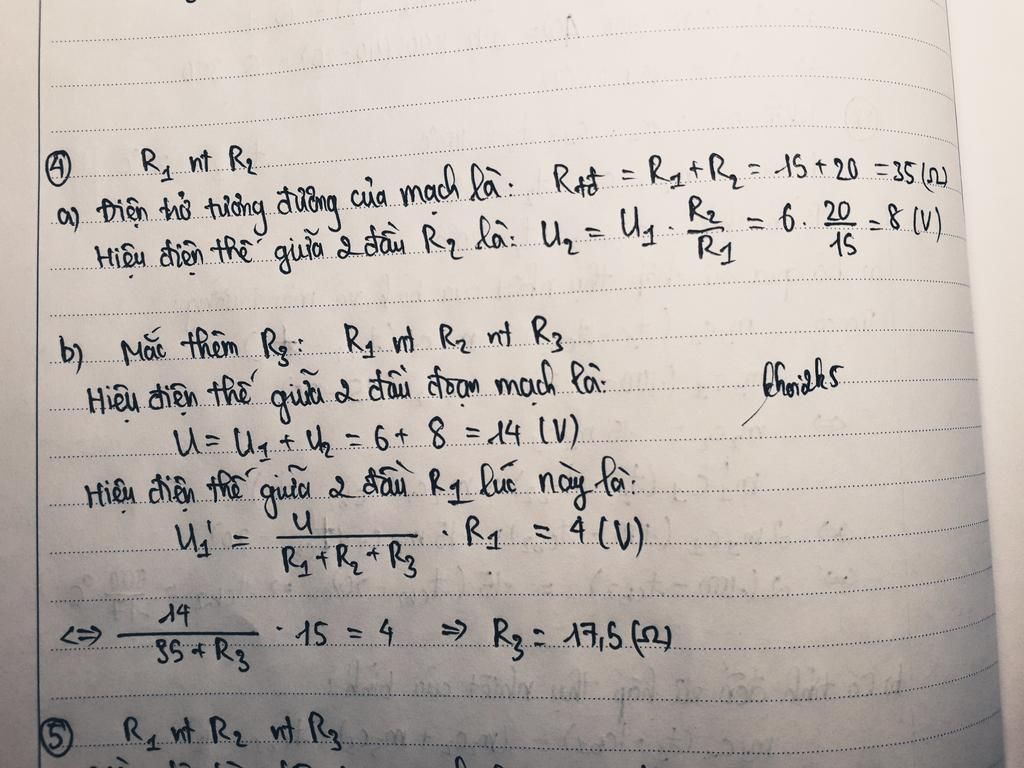 ④ R₁ nt R₂
a) Điện trở tương đương của mạch là: Rtđ = R₁ + R₂ = 15 + 20 = 35 (Ω)
Hiệu điện thế giữa 2 đầu R₂ là: U₂ = U₁ . R₂/R₁ = 6 . 20/15 = 8 (V)
b) Mắc thêm R₃: R₁ nt R₂ nt R₃
Hiệu điện thế giữa 2 đầu đoạn mạch là:
khoi2k5
U = U₁ + U₂ = 6 + 8 = 14 (V)
Hiệu điện thế giữa 2 đầu R₁ lúc này là:
U₁' = U/(R₁ + R₂ + R₃) . R₁ = 4 (V)
<=> 14/(35 + R₃) . 15 = 4 => R₃ = 17,5 (Ω)
⑤ R₁ nt R₂ nt R₃